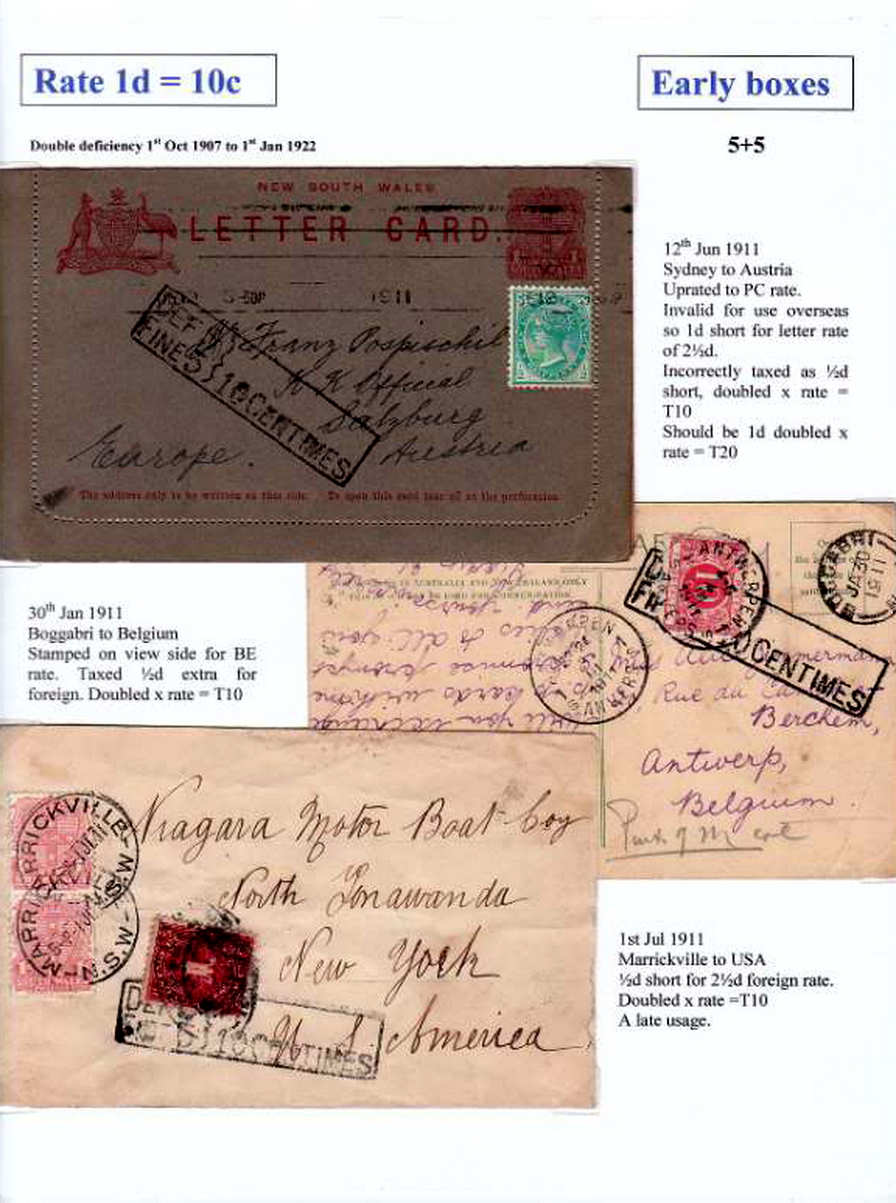 Rate 1d = 10c
Early boxes
Double deficiency 1st Oct 1907 to 1st Jan 1922
5+5
NEW SOUTH WALES
LETTER CARD.
5-50P
1911
DEF
FINE 5 } 10 CENTIMES
Franz Pospischil
K K Official
Salzburg
Europe.
Austria
The address only to be written on this side. To open this card tear off at the perforation.
12th Jun 1911
Sydney to Austria
Uprated to PC rate.
Invalid for use overseas
so 1d short for letter rate
of 2½d.
Incorrectly taxed as ½d
short, doubled x rate =
T10
Should be 1d doubled x
rate = T20
30th Jan 1911
Boggabri to Belgium
Stamped on view side for BE
rate. Taxed ½d extra for
foreign. Doubled x rate = T10
IN AUSTRALIA AND NEW ZEALAND ONLY
ANTWERPEN
BOGGABRI
JA 30
1911
CENTIMES
Rue du
Berchem,
Antwerp,
Belgium.
MARRICKVILLE N.S.W.
MARRICKVILLE N.S.W.
Niagara Motor Boat Coy
North Tonawanda
New York
U. S. America
DEF
10 CENTIMES
1st Jul 1911
Marrickville to USA
½d short for 2½d foreign rate.
Doubled x rate =T10
A late usage.